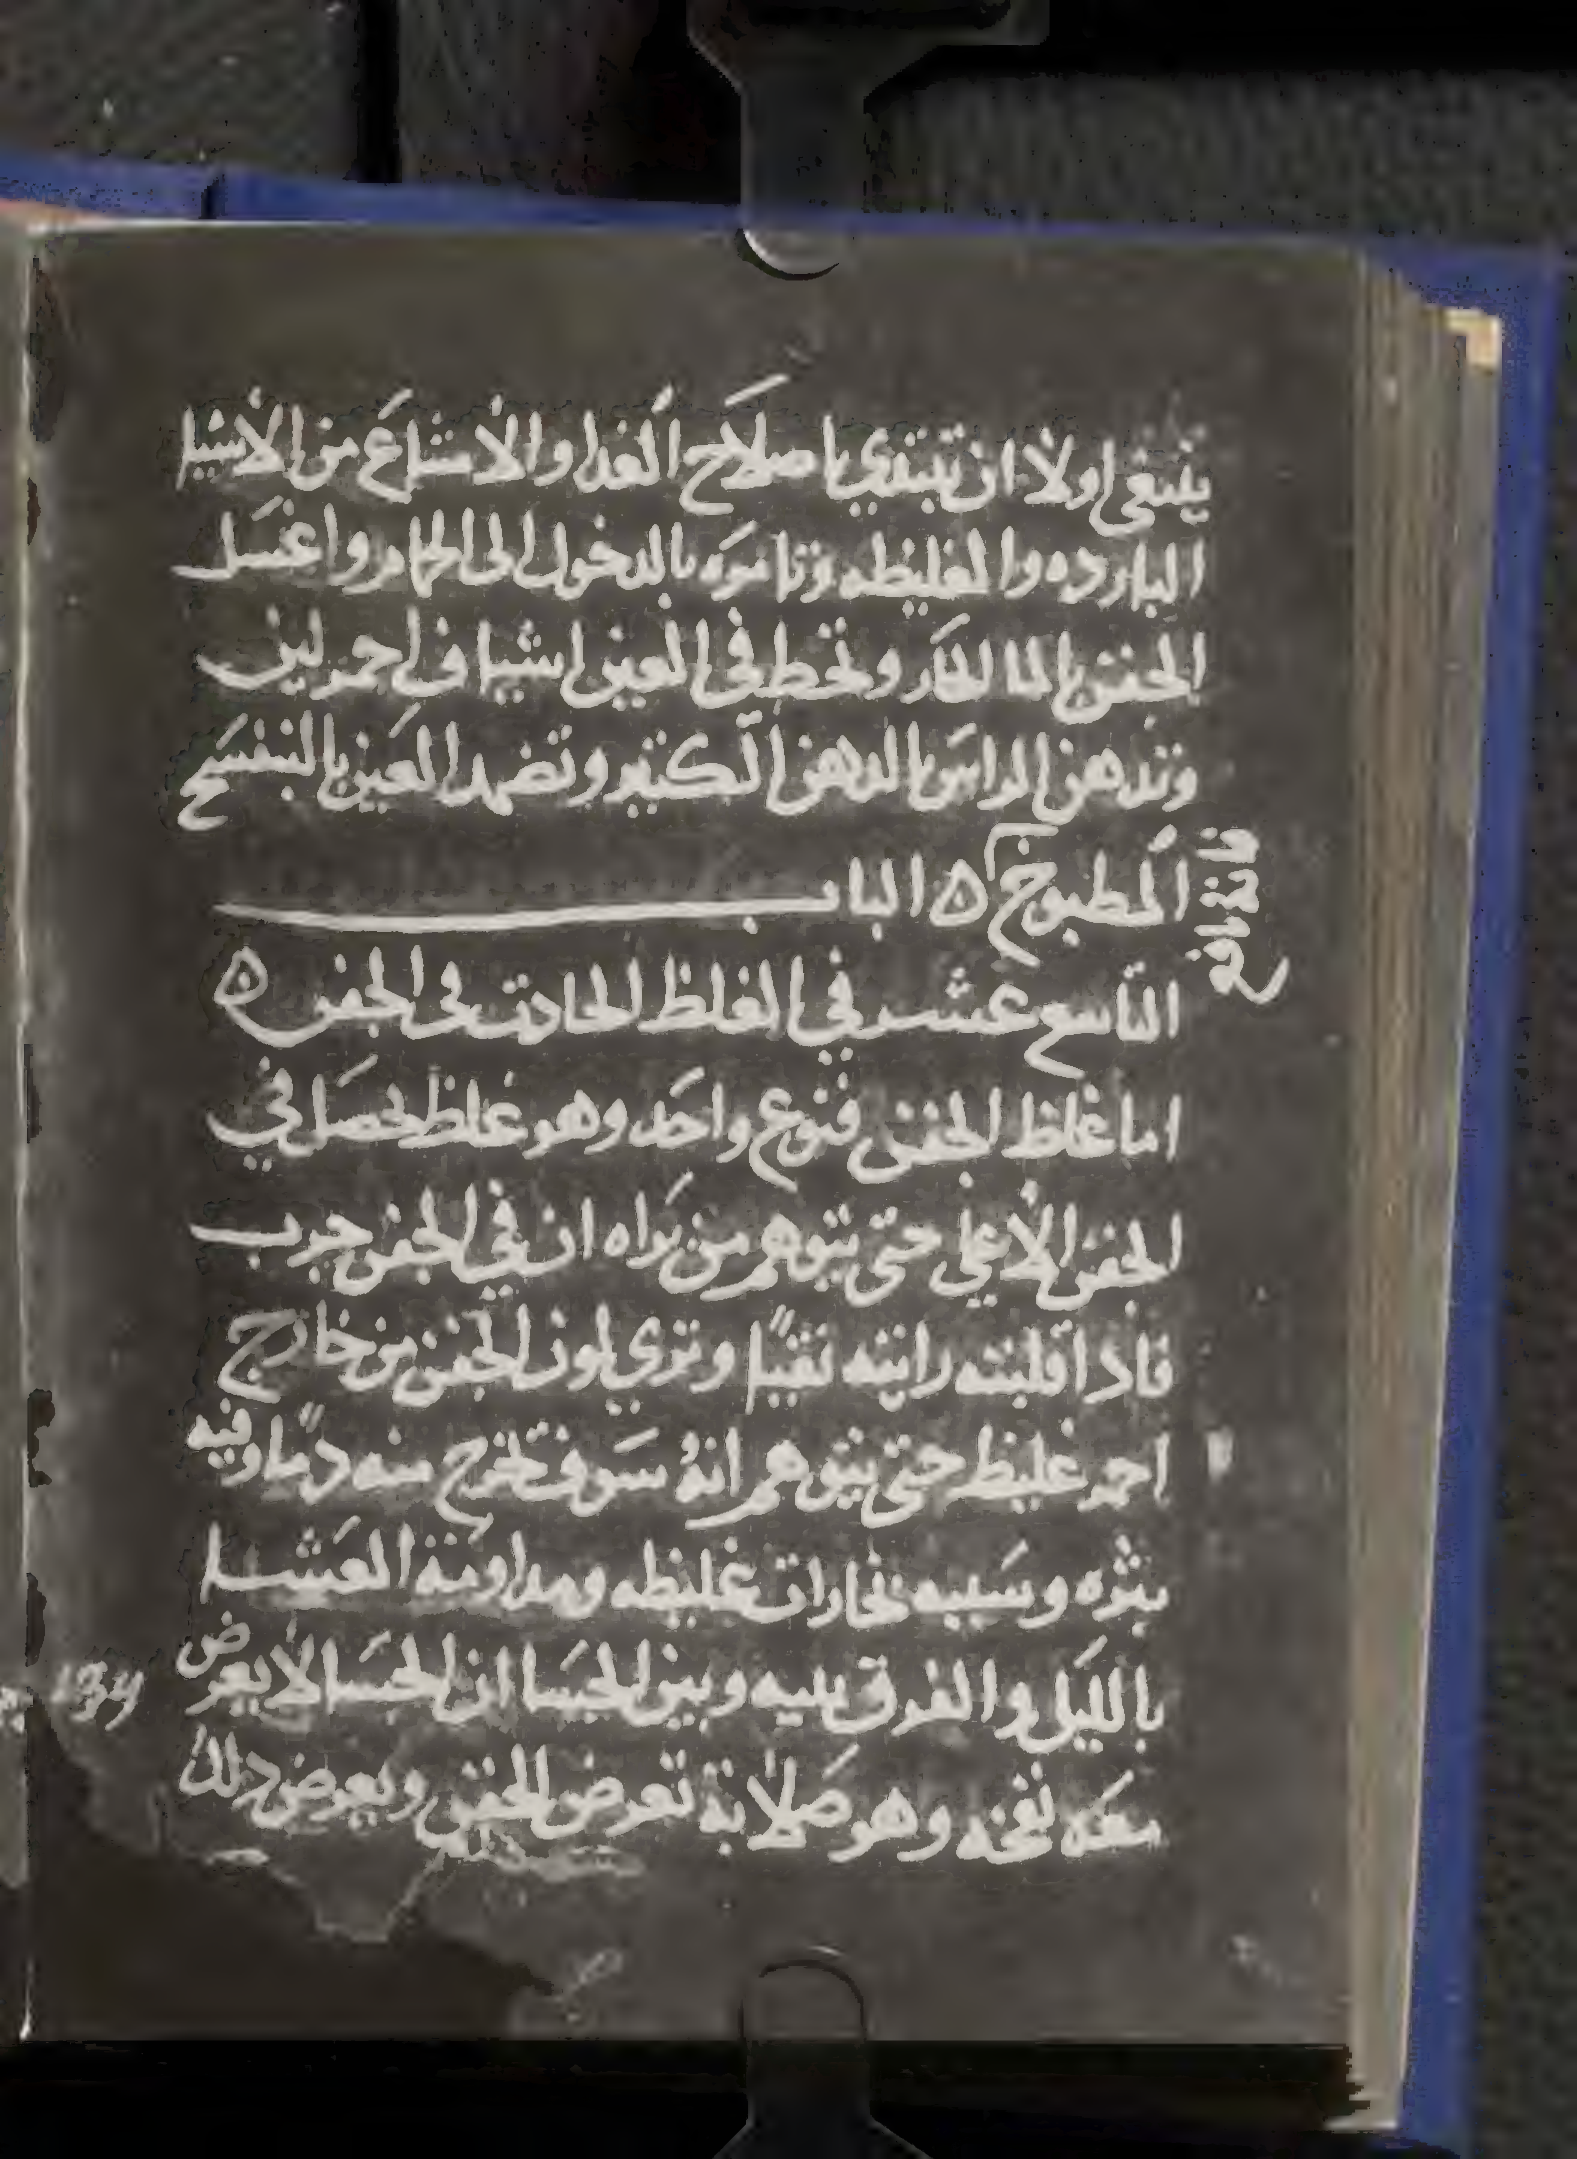 ينبغي اولا ان تبتدي باصلاح الغدا والامتناع من الاشيا
البارده والغليظه وتامره بالدخول الى الحمام واغسل
الجفن بالما الحار وتحط في العين اشياف احمر لين
وتدهن الراس بالدهن الكتير وتضمد العين بالبنفسج
المطبوخ ۵ الباب
التاسع عشر في الغلظ الحادت في الجفن ۵
اما غلظ الجفن فنوع واحد وهو غلظ يحصل في
الجفن الاعلي حتى يتوهم من يراه ان في الجفن جرب
فادا قلبته رايته نقيا وتري لون الجفن من خارج
احمر غليظ حتى يتوهم انه سوف تخرج منه دما وفيه
بثره وسببه بخارات غليظه ومداومة العشا
بالليل والفرق بينه وبين الجسا ان الجسا لا يعرض
معه نفخه وهو صلابة تعرض الجفن ويعرض دلك
134